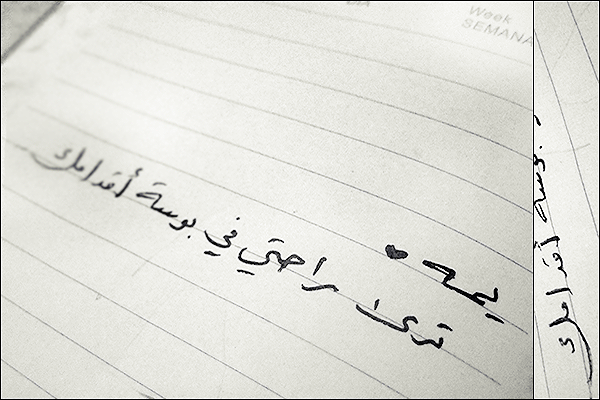 Week
SEMANA
يمه ♥
ترى راحتي في بوسة أقدامك
بوسة أقدامك